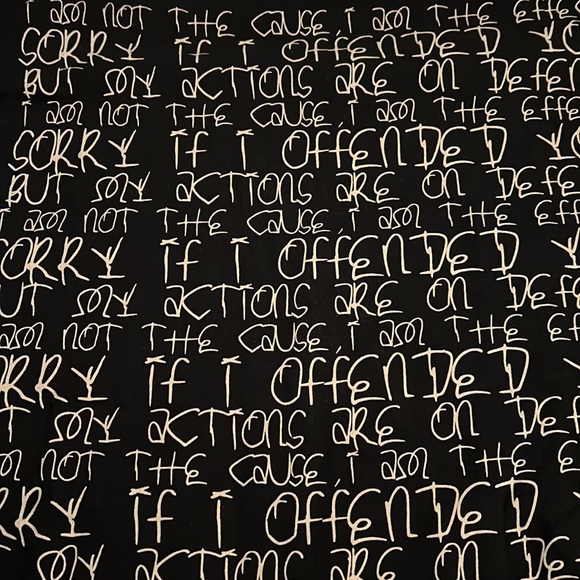 I am NOT THE CAUSE, I am THE EFFE
SORRY if I OffENDED YO
BUT MY aCTIONS aRE ON DEFEN
I am NOT THE CAUSE, I am THE EFFE
SORRY if I OffENDED YO
BUT MY aCTIONS aRE ON DEFE
I am NOT THE CAUSE, I am THE EFF
ORRY if I OffENDED Y
UT MY aCTIONS aRE ON DEFE
am NOT THE CAUSE, I am THE EF
RRY if I OffENDED Y
T MY aCTIONS aRE ON DEF
m NOT THE CAUSE, I am THE EF
RRY if I OffENDED Y
MY aCTIONS aRE ON DE